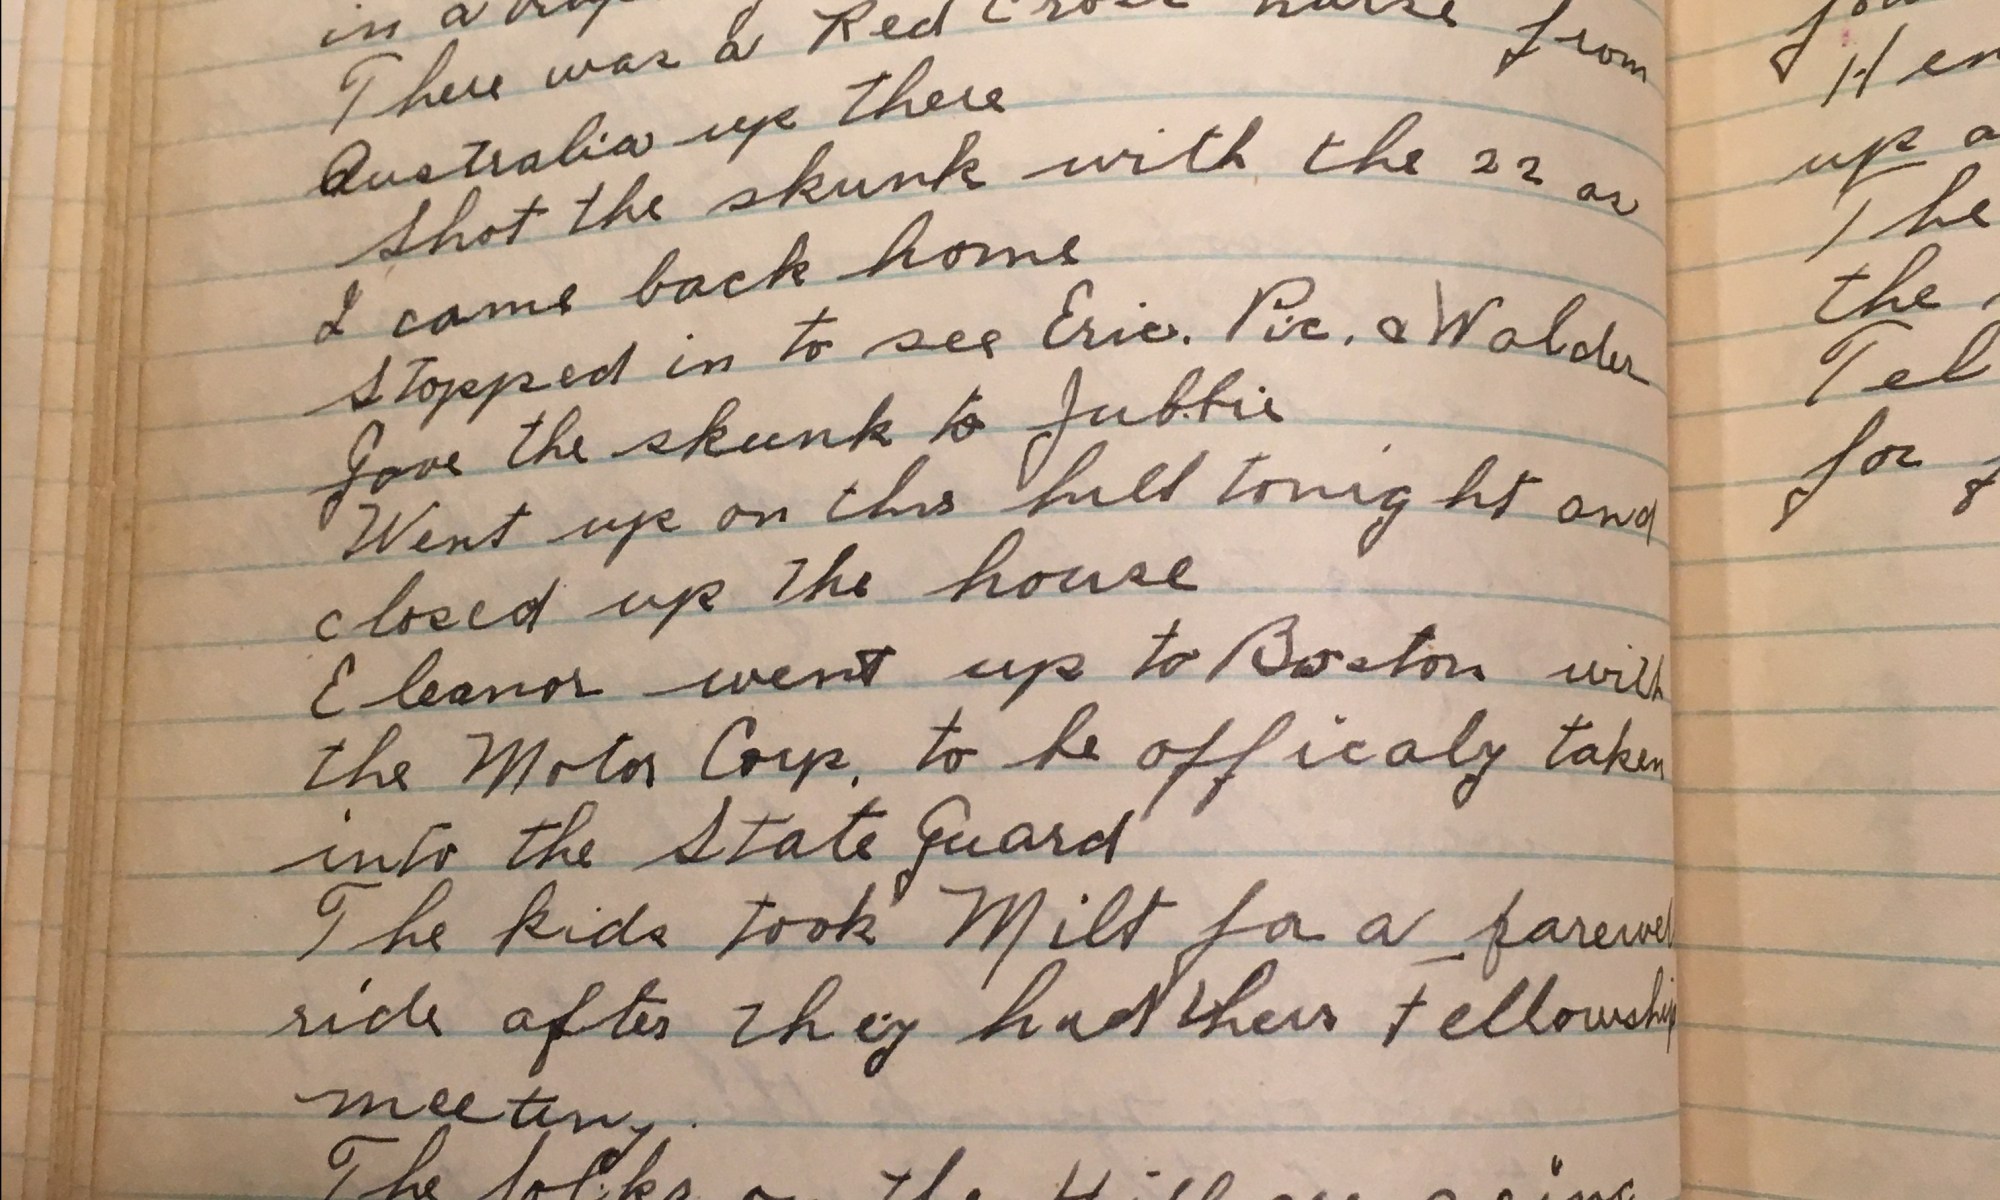 in a
There was a Red Cross nurse from
Australia up there
Shot the skunk with the 22 as
I came back home
Stopped in to see Eric. Pic. & Walder
Gave the skunk to Jubbie
Went up on this hill tonight and
closed up the house
Eleanor went up to Boston with
the Motor Corp. to be officaly taken
into the State Guard
The kids took Milt for a farewel
ride after they had their Fellowship
meeting.
The folks on the Hill are going
Hen
up a
The
the
Tel
for